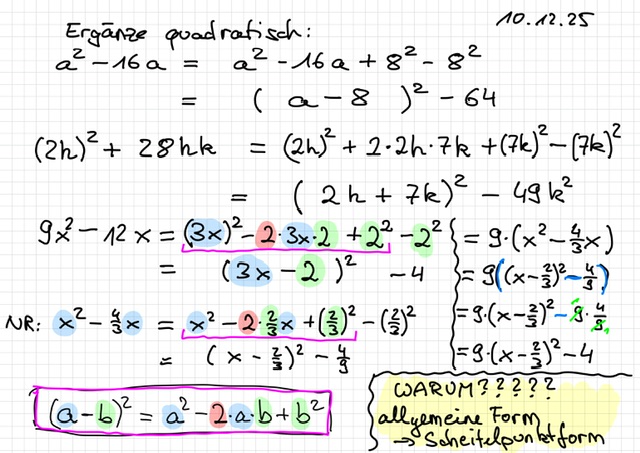 10.12.25
Ergänze quadratisch:
a² - 16a = a² - 16a + 8² - 8²
= ( a - 8 )² - 64
(2h)² + 28hk = (2h)² + 2·2h·7k + (7k)² - (7k)²
= ( 2h + 7k )² - 49k²
9x² - 12x = (3x)² - 2·3x·2 + 2² - 2²
= (3x - 2)² - 4
= 9·(x² - 4/3x)
= 9((x - 2/3)² - 4/9)
= 9·(x - 2/3)² - 9·4/9
= 9·(x - 2/3)² - 4
NR: x² - 4/3x = x² - 2·2/3x + (2/3)² - (2/3)²
= (x - 2/3)² - 4/9
(a - b)² = a² - 2·a·b + b²
WARUM?????
allgemeine Form
→ Scheitelpunktform